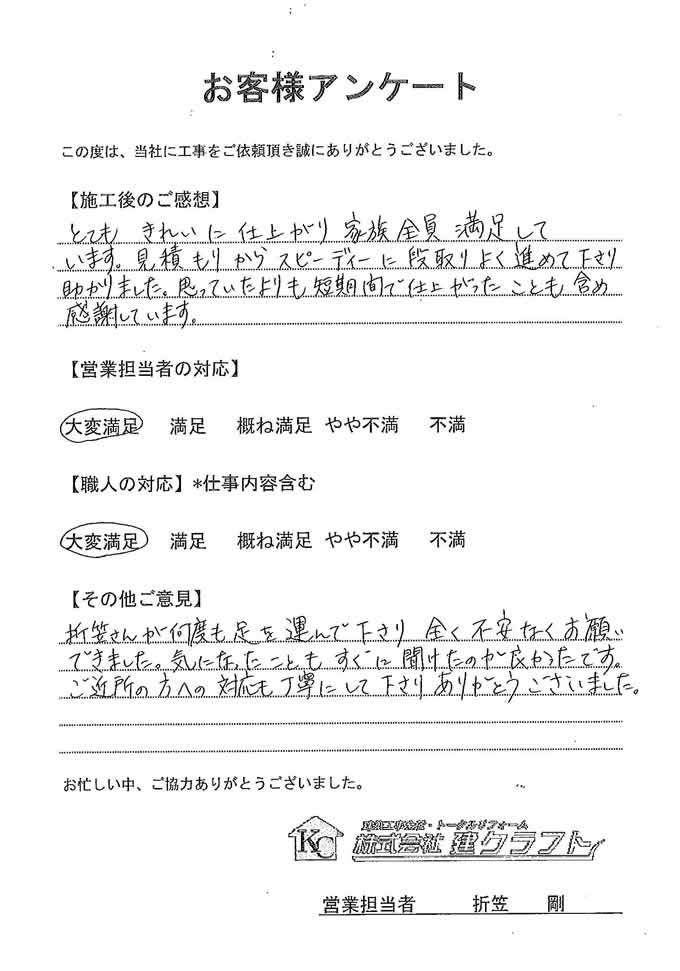 お客様アンケート
この度は、当社に工事をご依頼頂き誠にありがとうございました。
【施工後のご感想】
とても きれいに 仕上がり 家族全員 満足して
います。見積もりから スピーディーに 段取りよく進めて下さり
助かりました。思っていたよりも 短期間で仕上がったことも 含め
感謝しています。
【営業担当者の対応】
大変満足 満足 概ね満足 やや不満 不満
【職人の対応】*仕事内容含む
大変満足 満足 概ね満足 やや不満 不満
【その他ご意見】
折笠さんが何度も足を運んで下さり 全く不安なくお願い
できました。気になったことも すぐに聞けたのが良かったです。
ご近所の方への対応も丁寧にして下さりありがとうございました。
お忙しい中、ご協力ありがとうございました。
建築工事全般・トータルリフォーム
KC 株式会社 建クラフト
営業担当者 折笠 剛